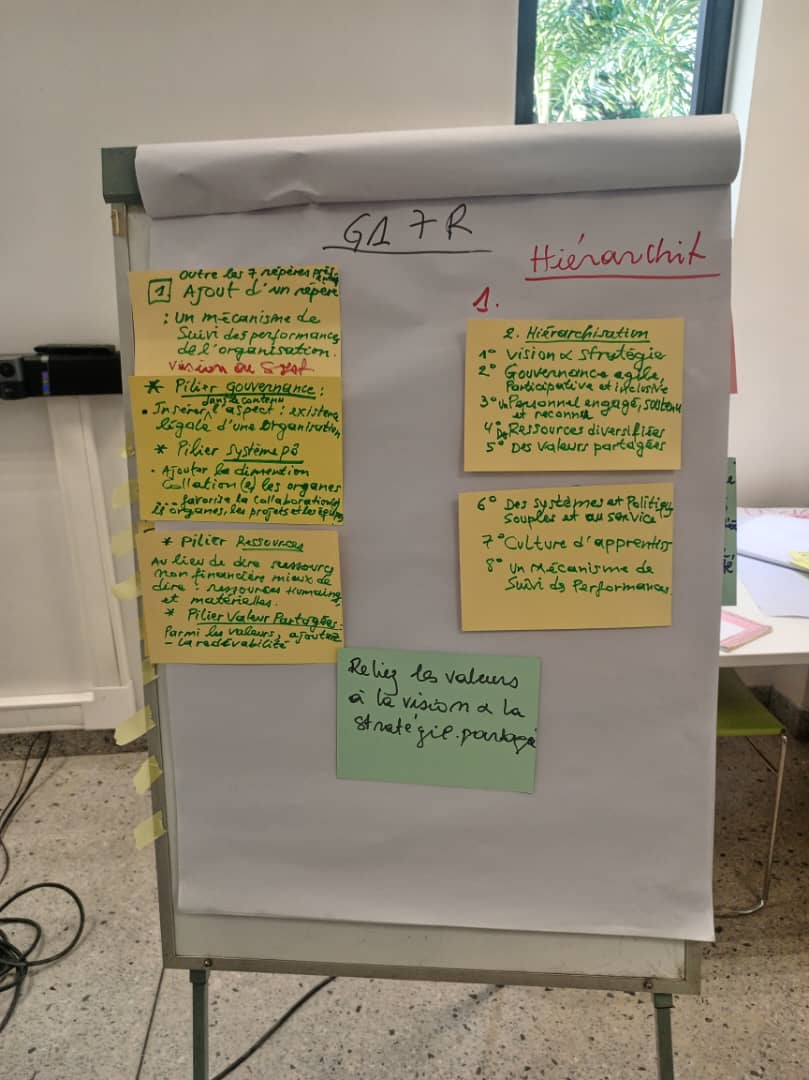 G1 7 R
Hiérarchit
1.
outre les 7 répères
1 Ajout d'un répère
: Un mécanisme de
Suivi des performances
de l'organisation.
Vision ou
* Pilier gouvernance :
dans le contenu
• Insérer l'aspect : existence
légale d'une Organisation
* Pilier Système
• Ajouter la dimention
Collation les organes
favorise la collaboration
organes, les projets et les
* Pilier Ressources
Au lieu de dire ressources
non financière mieux de
dire : ressources Humaing
et matérielles.
* Pilier Valeur Partagées.
Parmi les valeurs, ajoutez
- la redévabilité -
2. Hiérarchisation
1° Vision & stratégie
2° Gouvernance agile,
Participative et inclusive
3° un Personnel engagé, soutenu
et reconnu
4° Ds Ressources diversifiées
5° Des valeurs partagées
6° Des systèmes et Politiq
Souples et au service
7° Culture d'apprentiss
8° Un Mécanisme de
Suivi de Performances.
Reliez les valeurs
à la vision & la
stratégie. partagé